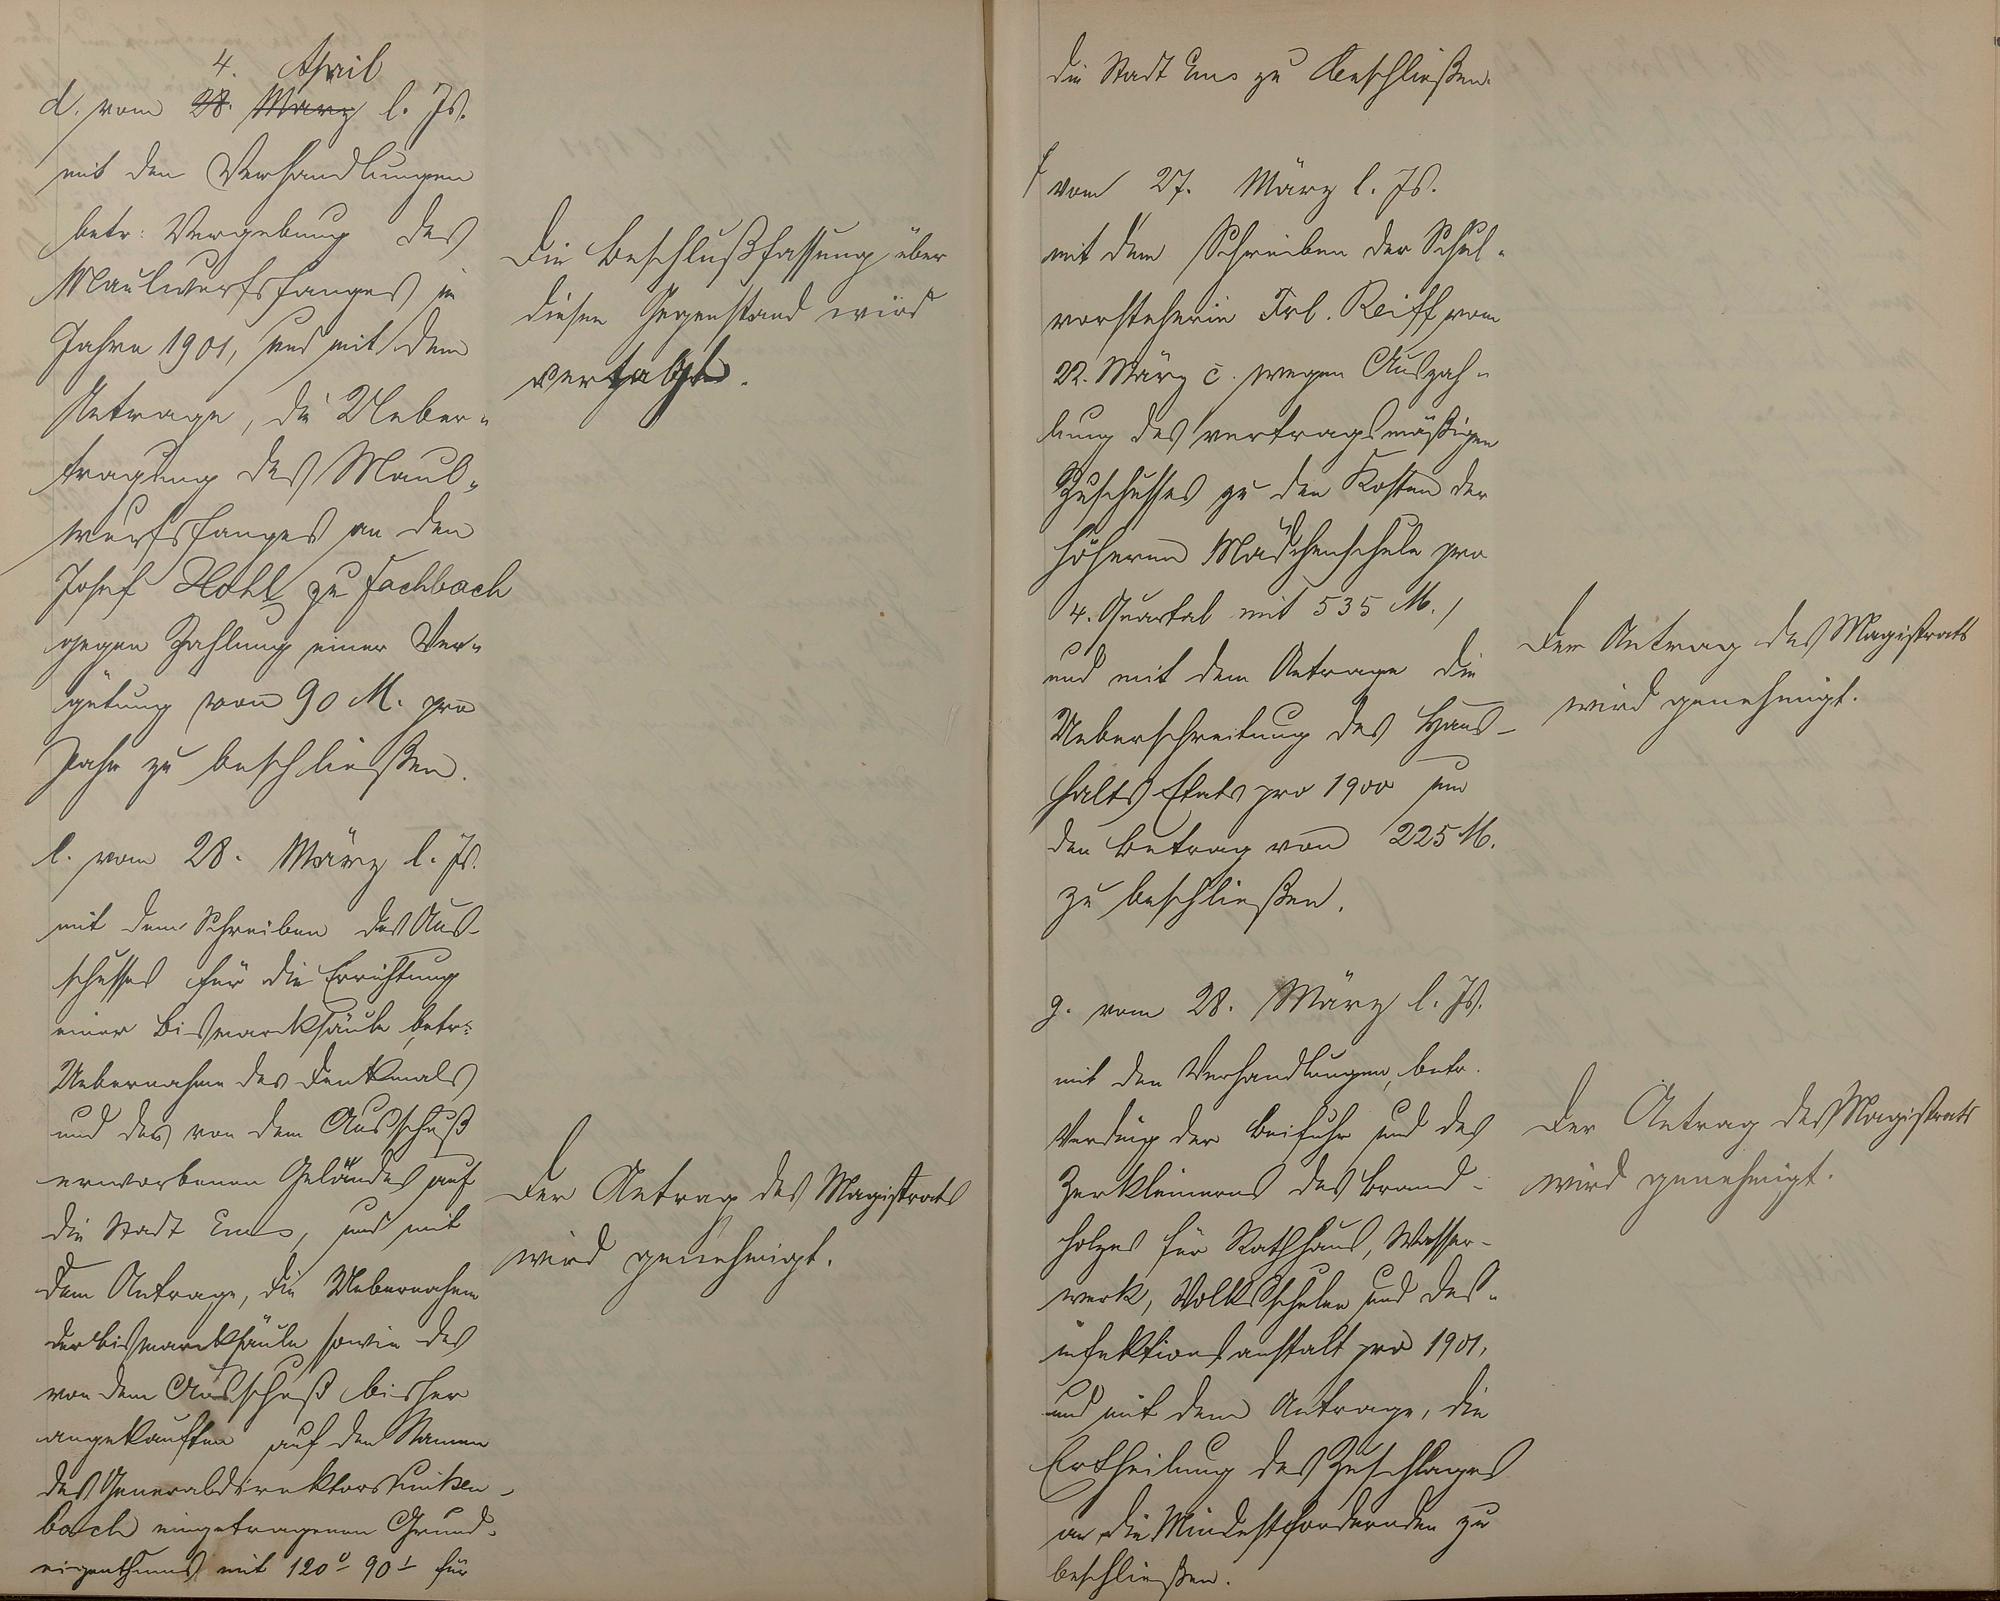 4. April
d. vom 28. März l. Js.
mit den Verhandlungen
betr: Vergebung des
Maulwurfsfanges im
Jahre 1901, und mit dem
Antrage, die Ueber-
tragung des Maul-
wurfsfanges an den
Josef Hohl zu Fachbach
gegen Zahlung einer Ver-
gütung von 90 M. pro
Jahr zu beschließen.
Die Beschlußfassung über
diesen Gegenstand wird
vertagt.
l. vom 28. März l. Js.
mit dem Schreiben des Aus-
schusses für die Errichtung
einer Bismarcksäule, betr:
Uebernahme des Denkmals
und des von dem Ausschuß
erworbenen Geländes auf
die Stadt Ems, und mit
dem Antrage, die Uebernahme
der Bismarcksäule sowie des
von dem Ausschuß bisher
angekauften auf den Namen
des Generaldirektors Linken-
bach eingetragenen Grund-
eigenthums mit 120 90 für
Der Antrag des Magistrats
wird genehmigt.
die Stadt Ems zu beschließen.
f vom 27. März l. Js.
mit dem Schreiben der Schul-
vorsteherin Frl. Reiff vom
22. März c. wegen Auszah-
lung des vertragsmäßigen
Zuschusses zu den Kosten der
höheren Mädchenschule pro
4. Quartal mit 535 M.,
und mit dem Antrage die
Ueberschreitung des Haus-
halts Etats pro 1900 um
den Betrag von 225 M.
zu beschließen.
Der Antrag des Magistrats
wird genehmigt.
g. vom 28. März l. Js.
mit den Verhandlungen, betr.
Verding der Beifuhr und des
Zerkleinerns des Brand-
holzes für Rathhaus, Wasser-
werk, Volksschulen und Des-
infektionsanstalt pro 1901,
und mit dem Antrage, die
Ertheilung des Zuschlages
an die Mindestfordernden zu
beschließen.
Der Antrag des Magistrats
wird genehmigt.